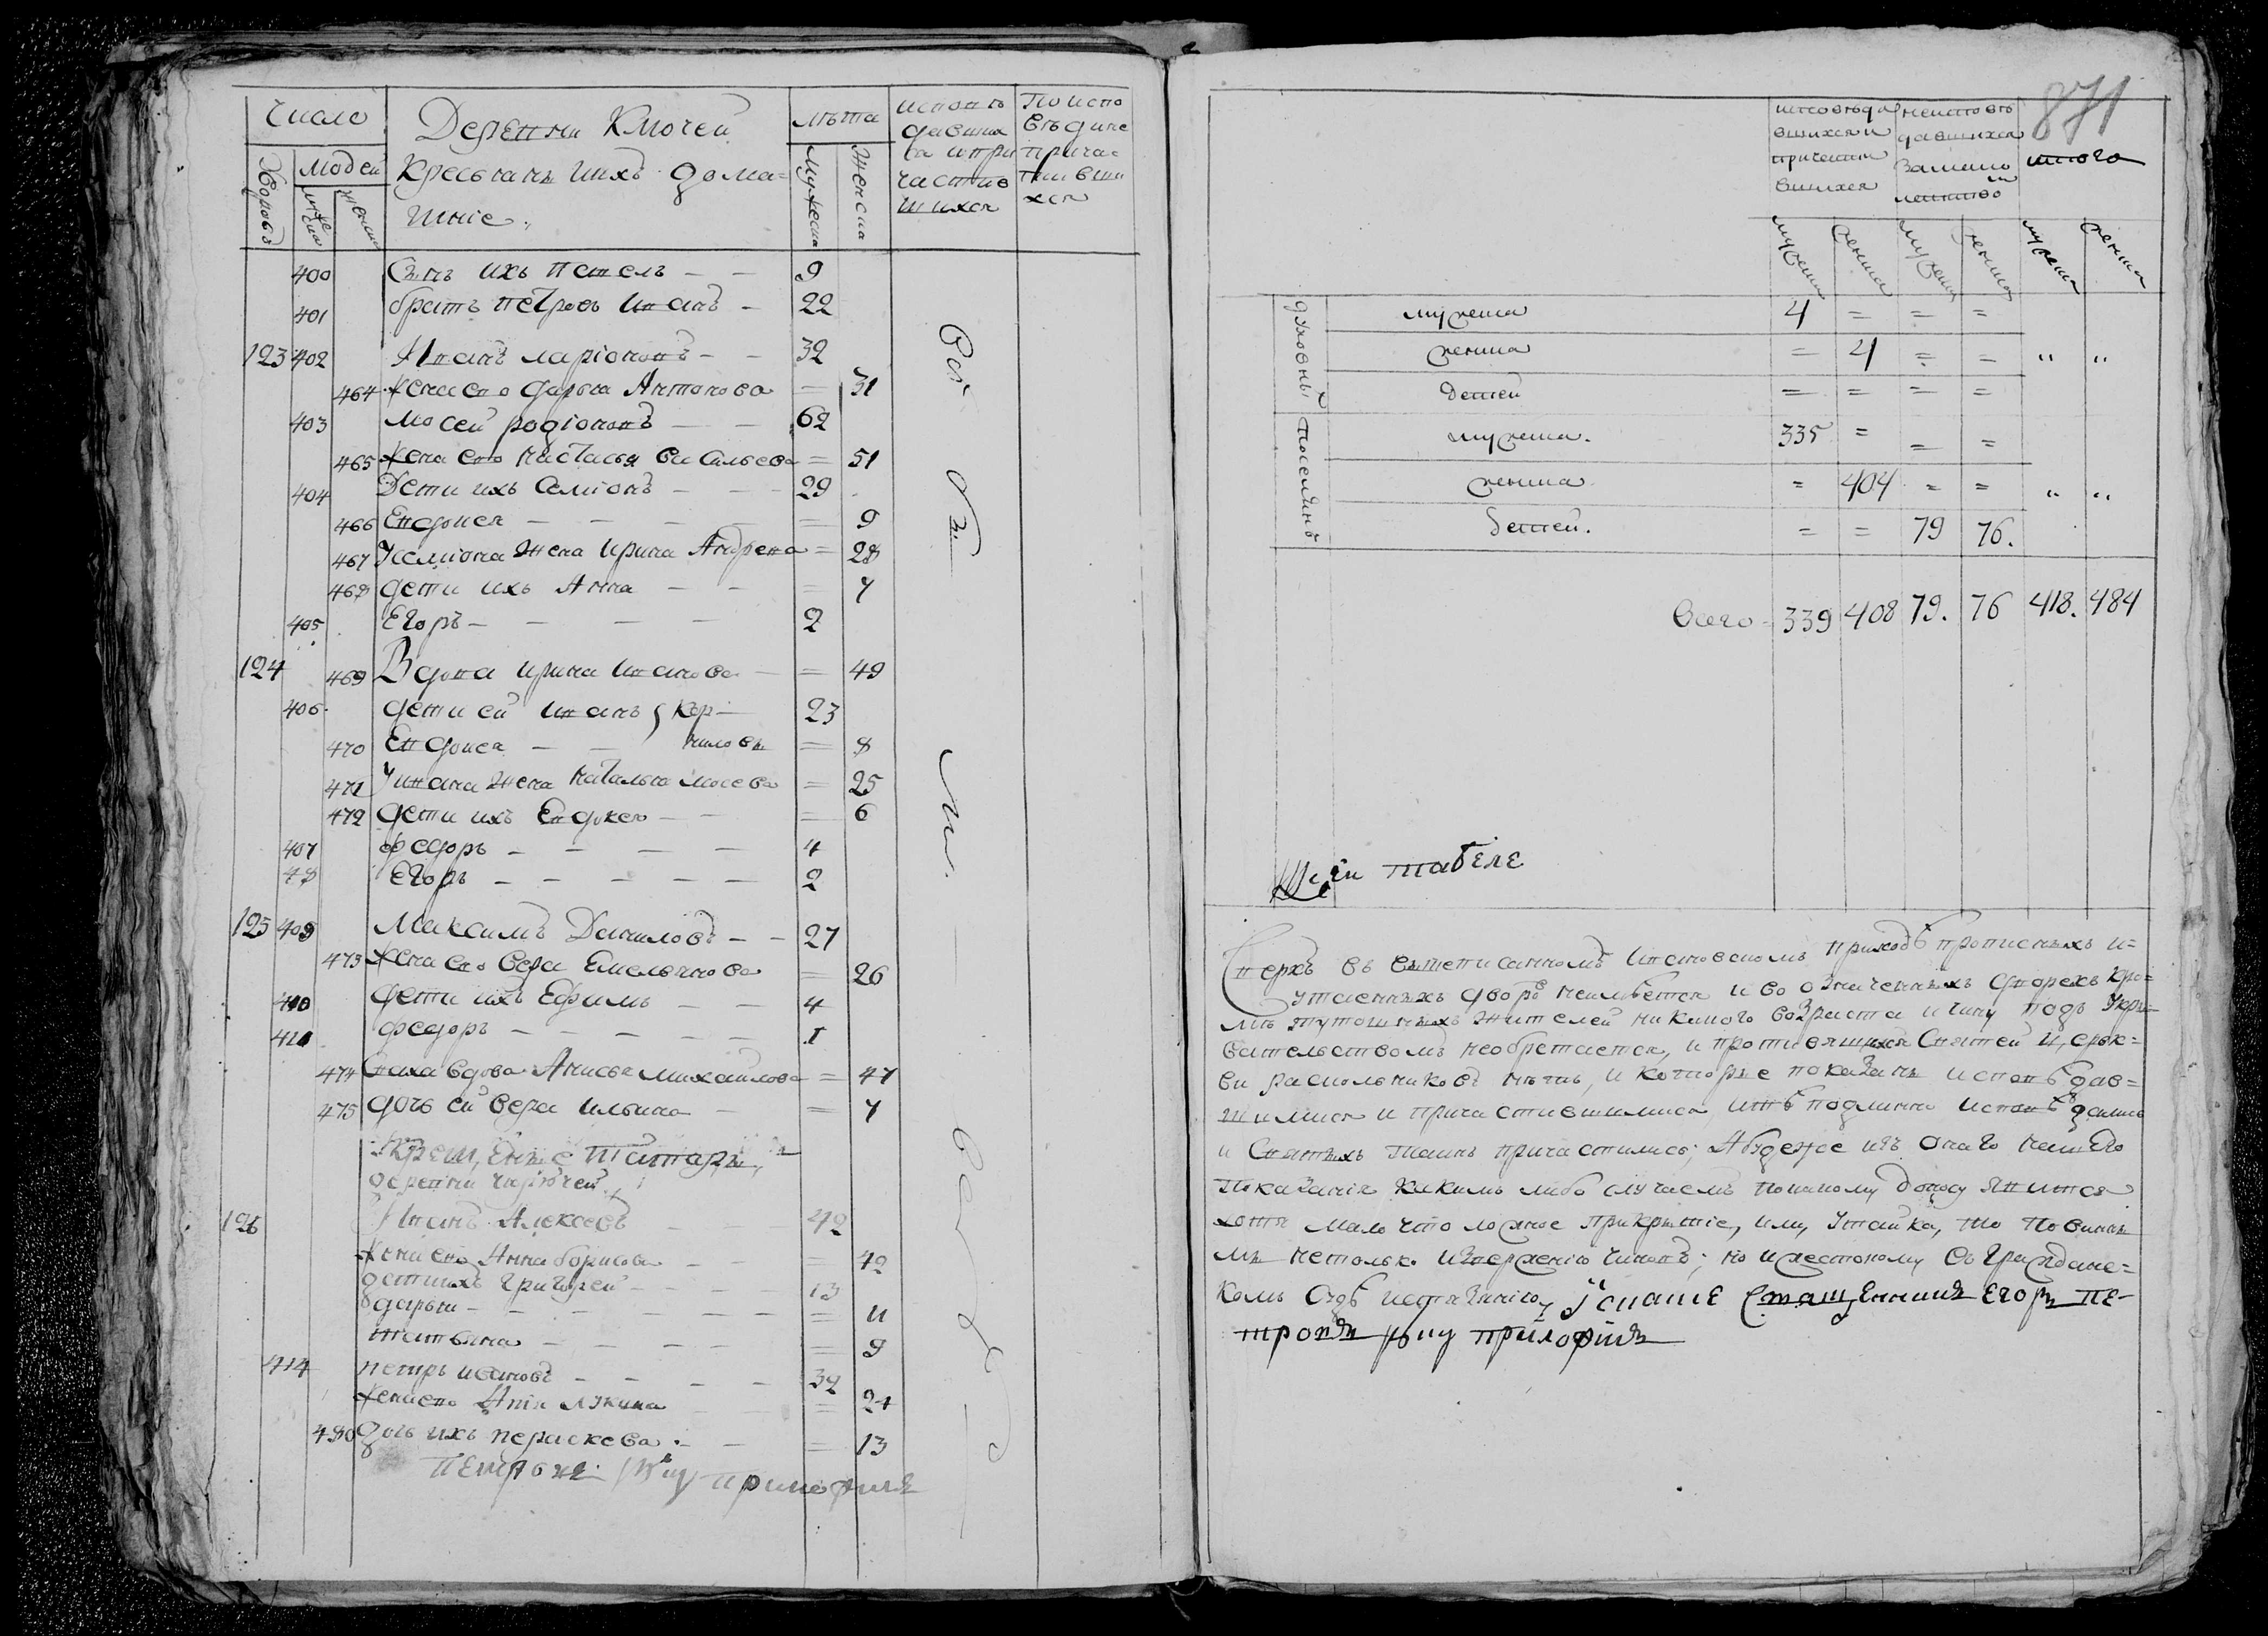 Число
Деревни Ключей
лѣта
исповѣ
По испо
Дворовъ
людей
Крестьянъ ихъ дома=
мужеска
женска
давших
вѣди не
мужеска
женска
шніе.
ся и при
прича=
частив
стивши
шихся
хся
400 Сынъ ихъ Павелъ — — 9
401 братъ петровъ Иванъ — 22
123 402 Иванъ ларіоновъ — — 32
464 жена ево дарья Антонова = 31
403 Мосей родіоновъ — — 62
465 жена ево настасья васильева = 51
404 Дети ихъ Семіонъ — — 29
466 Евдокея — — — = 9
467 У Семіона жена Ирина Андреева = 28
468 дети ихъ Анна — — = 7
405 Егоръ — — — — 2
124 469 Вдова ирина иванова — = 49
406 дети ей иванъ { Кор— 23
470 Евдокея — — ниловы = 8
471 У ивана жена наталья мосева = 25
472 дети ихъ Евдокея — — = 6
407 федоръ — — — — 4
48 Егоръ — — — — — 2
125 409 Максимъ Даниловъ — — 27
473 жена ево вера Емельянова = 26
410 дети ихъ Ефимъ — — 4
411 федоръ — — — — 1
474 Сноха вдова Анисья михайлова = 47
475 дочь ей вера ильина — = 7
Крещеные Татары
деревни ключей
126 Иванъ Алексеевъ — — — 42
жена ево Анна борисова — — = 42
дети ихъ григорей — — — 13
дарья — — — — — = 11
татьяна — — — — = 9
414 петръ ивановъ — — — — 32
жена ево лукина = 24
480 дочь ихъ пераскева — — = 13
Петровъ руку приложилъ
Вси
бы
ли
871
исповѣда
неисповѣ
вшихся и
давшихся
причасти
за мало
итого
вшихся
летство
мужеска
женска
мужеска
женска
мужеска
женска
духовных
мужеска 4 = = =
женска = 4 = = " "
детей = = = =
поселянъ
мужеска. 335 = = =
женска = 404 = = " "
детей. = = 79 76.
Всего 339 408 79. 76 418. 484
К сей табеле
Сверхъ въ вышеписанномъ Ивановскомъ приходѣ прописныхъ и=
утаенныхъ дворѣ неимѣется и во означенныхъ дворехъ кро=
мѣ тутошныхъ жителей никакого возраста и чину подъ укры=
вательствомъ необретается, и противящихся Святей Церк=
ви раскольниковъ нѣтъ, и которые показаны исповѣдав=
шимися и причастившимися, и тѣ подлинно исповѣдались
и Святыхъ таинъ причастились; А буде же изъ онаго нашего
показанія какимъ либо случаемъ по какому доносу явится
хотя мало что ложное прикрытіе, или, утайка, то повинны
мы нетолько изверженію чиновъ; но и жестокому въ граждане=
комъ Судѣ истязанію, Священникъ Егоръ Пе-
тровъ руку приложилъ